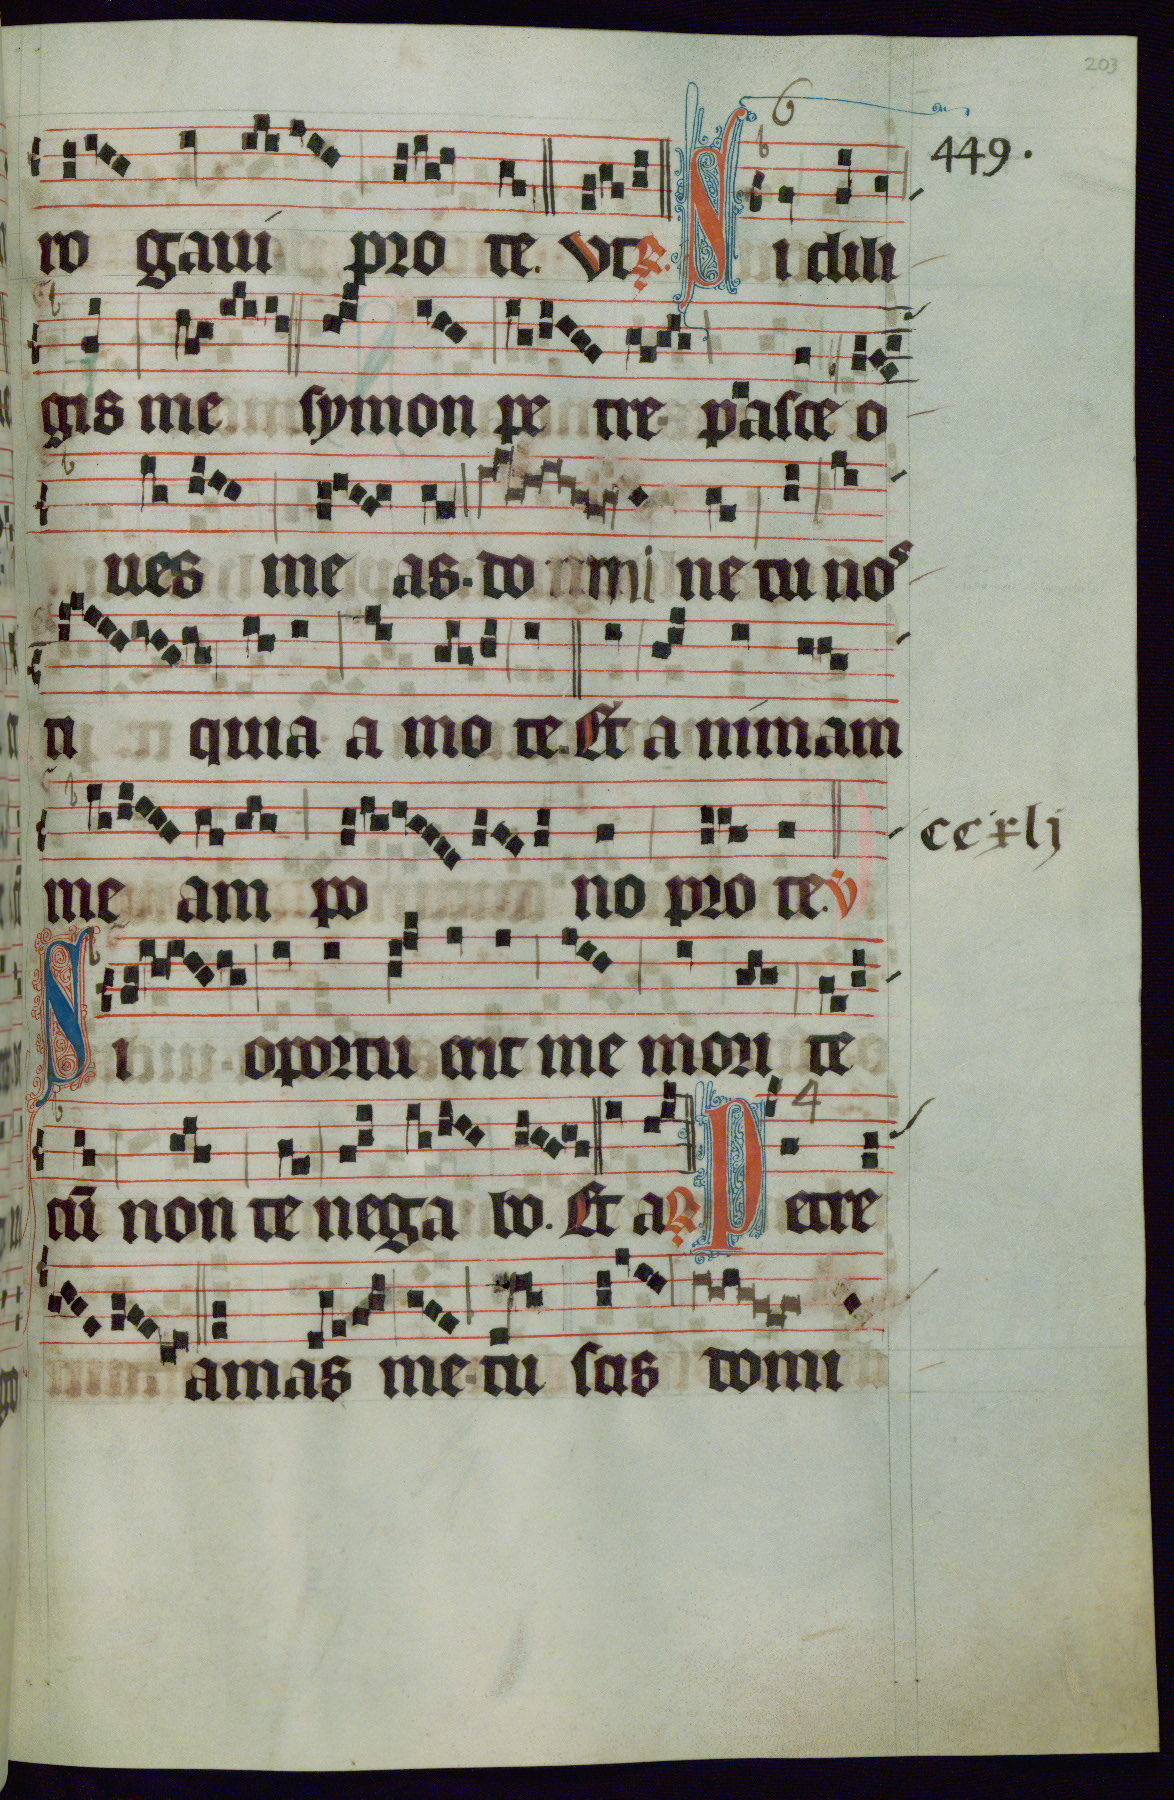 203
6
449.
ro gaui pro te. Vt R. Si dili
gis me symon pe tre pasce o
ues me as. do mi ne tu nos
ti quia a mo te. Et a nimam
me am po no pro te. V
ccxlj
Si oportu erit me mori te
4
cū non te nega bo. Et a R Petre
amas me. tu scis domi